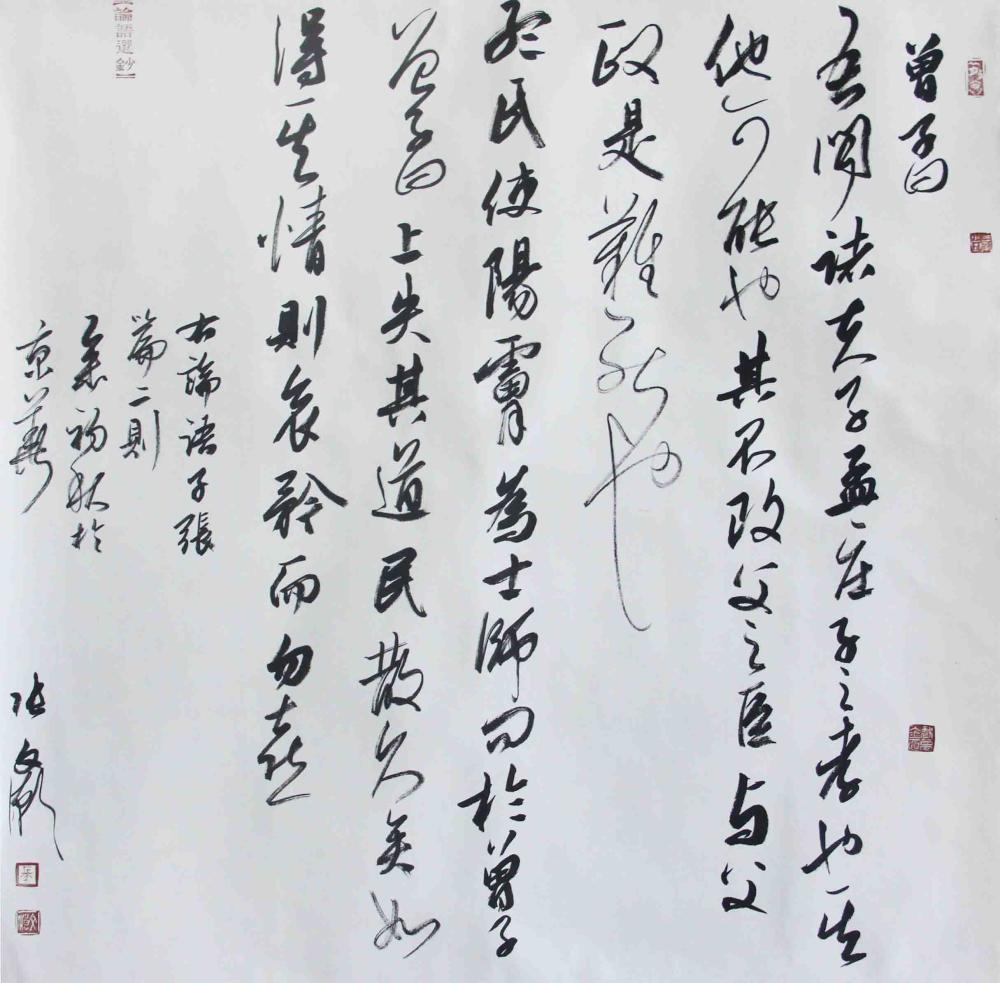 曾子曰
吾聞諸夫子孟莊子之孝也其
他可能也其不改父之臣与父
政是難能也
孟氏使陽膚為士師問於曾子
曾子曰上失其道民散久矣如
得其情則哀矜而勿喜
右論語子張
篇二則
初秋於
京華
張
【論語選鈔】